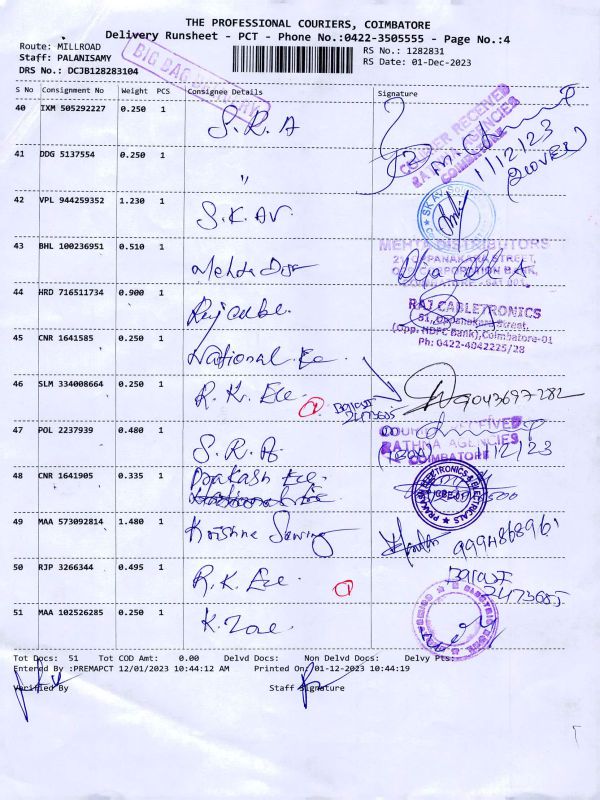 THE PROFESSIONAL COURIERS, COIMBATORE
Delivery Runsheet - PCT - Phone No.:0422-3505555 - Page No.:4
Route: MILLROAD
RS No.: 1282831
Staff: PALANISAMY
RS Date: 01-Dec-2023
DRS No.: DCJB128283104
BIG BAG
S No Consignment No Weight PCS Consignee Details Signature
40 IXM 505292227 0.250 1 S.R.A
COURIER RECEIVED
RATHNA AGENCIES
COIMBATORE
1/12/23
41 DDG 5137554 0.250 1 "
42 VPL 944259352 1.230 1 S.K.AV.
43 BHL 100236951 0.510 1 Mehda Dist
MEHTA DISTRIBUTORS
OPPANAKARA STREET,
CORPORATION BANK,
44 HRD 716511734 0.900 1 Raj cable.
RAJ CABLETRONICS
51, Oppanakara Street,
(Opp. HDFC Bank), Coimbatore-01
Ph: 0422-4042225/28
45 CNR 1641585 0.250 1 National. Ee.
46 SLM 334008664 0.250 1 R. K. Ece
9043697282
2473685
47 POL 2237939 0.480 1 S.R.A.
COURIER RECEIVED
RATHNA AGENCIES
COIMBATORE
1/12/23
48 CNR 1641905 0.335 1 Prakash Ece.
PRAKASH ELECTRONICS & ELECTRICALS
49 MAA 573092814 1.480 1 Krishna Sewing
9994868961
50 RJP 3266344 0.495 1 R.K. Ece
2473685
51 MAA 102526285 0.250 1 K. Zae
Tot Docs: 51 Tot COD Amt: 0.00 Delvd Docs: Non Delvd Docs: Delvy Pts:
Entered By :PREMAPCT 12/01/2023 10:44:12 AM Printed On: 01-12-2023 10:44:19
Verified By Staff Signature